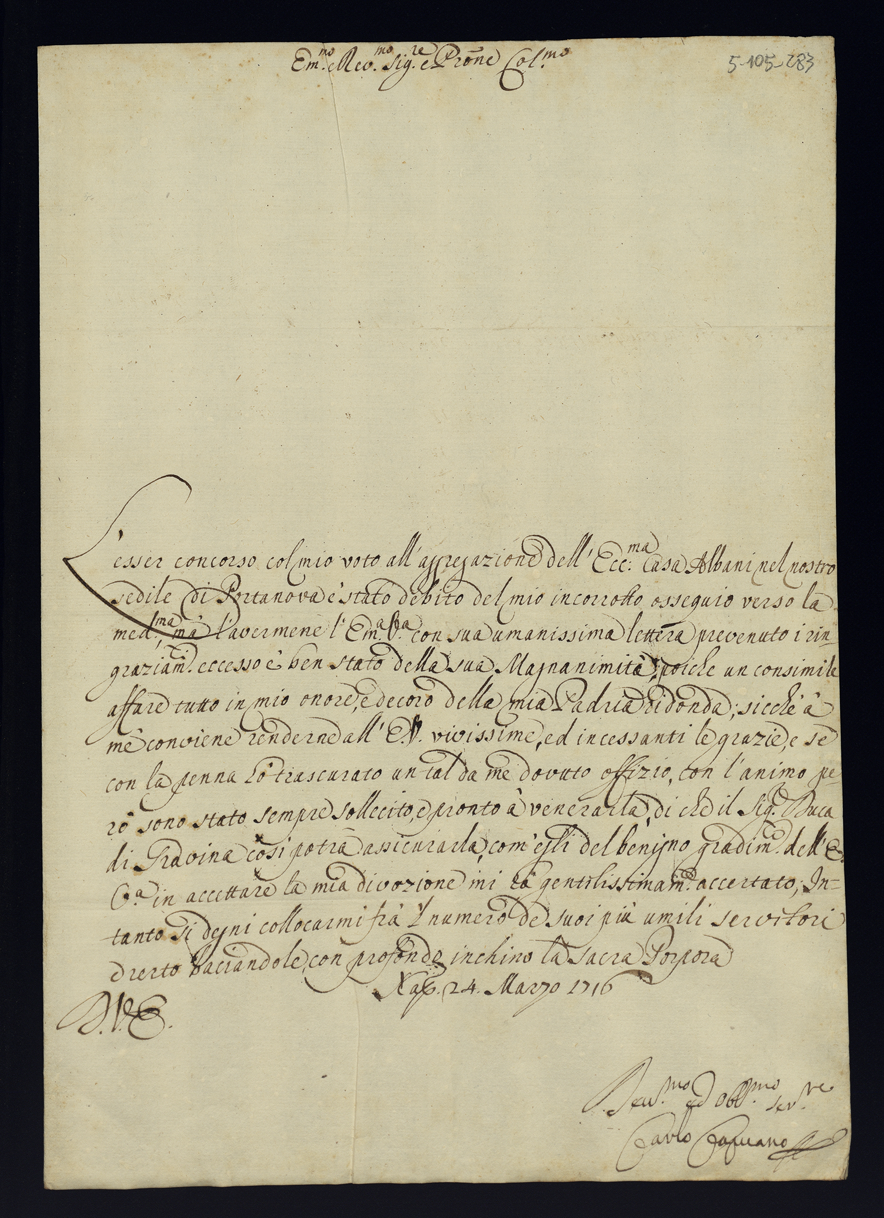 Em.mo e Rev.mo Sig.re e Prõne Col.mo
5-105-283
L'esser concorso col mio voto all'aggregazione dell'Ecc.ma Casa Albani nel nostro
sedile di Portanova è stato debito del mio incorrotto ossequio verso la
med.ma mà l'avermene l'Em.a V.a con sua umanissima lettera prevenuto i rin-
graziam.ti eccesso è ben stato della sua Magnanimità, poiche un consimile
affare tutto in mio onore, e decoro della mia Padria ridonda; sicche à
mè conviene renderne all'E.V. vivissime, ed incessanti le grazie, e se
con la penna hò trascurato un tal da me dovuto offizio, con l'animo pe-
rò sono stato sempre sollecito, e pronto à venerarla, di che il Sig.r Duca
di Gravina così potrà assicurarla, com'egli del benigno gradim.to dell'E.
V.a in accettare la mia divozione mi hà gentilissimam.te accertato; In-
tanto si degni collocarmi frà 'l numero de suoi più umili servitori
e resto baciandole con profondo inchino la Sacra Porpora
Nap. 24. Marzo 1716
D.V.E.
Dev.mo ed Obl.mo ser.re
Carlo Capuano